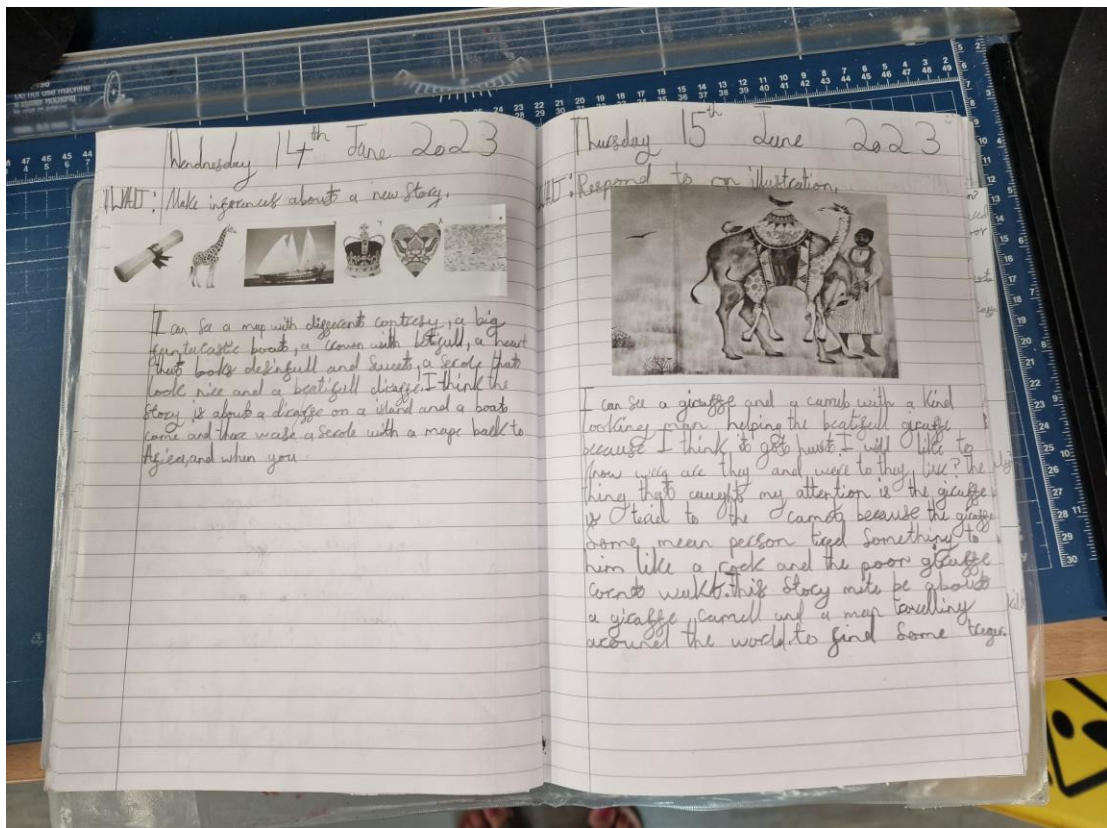 Do not use machine
Wendnesday 14th June 2023
WALT: Make inferences about a new story.
I can see a map with different contresy, a big
funtalastic boat, a crown with butifull, a heart
that looks delinfull and sweet, a scrole that
look nice and a beatifull diraffe. I think the
Story is about a diraffe on a island and a boat
came and there wase a scrole with a mape back to
and when you
Thursday 15th June 2023
WALT: Respond to an illustration.
I can see a giraffe and a with a kind
looking man helping the beatifull giraffe
because I think it got hurt. I will like to
know are they and were to they live? the
thing that caught my attention is the giraffe
is to the because the giraffe
Some mean person tied Something to
him like a rock and the poor giraffe
this story mite be about
a giraffe, Camell and a man travelling
around the world to find some